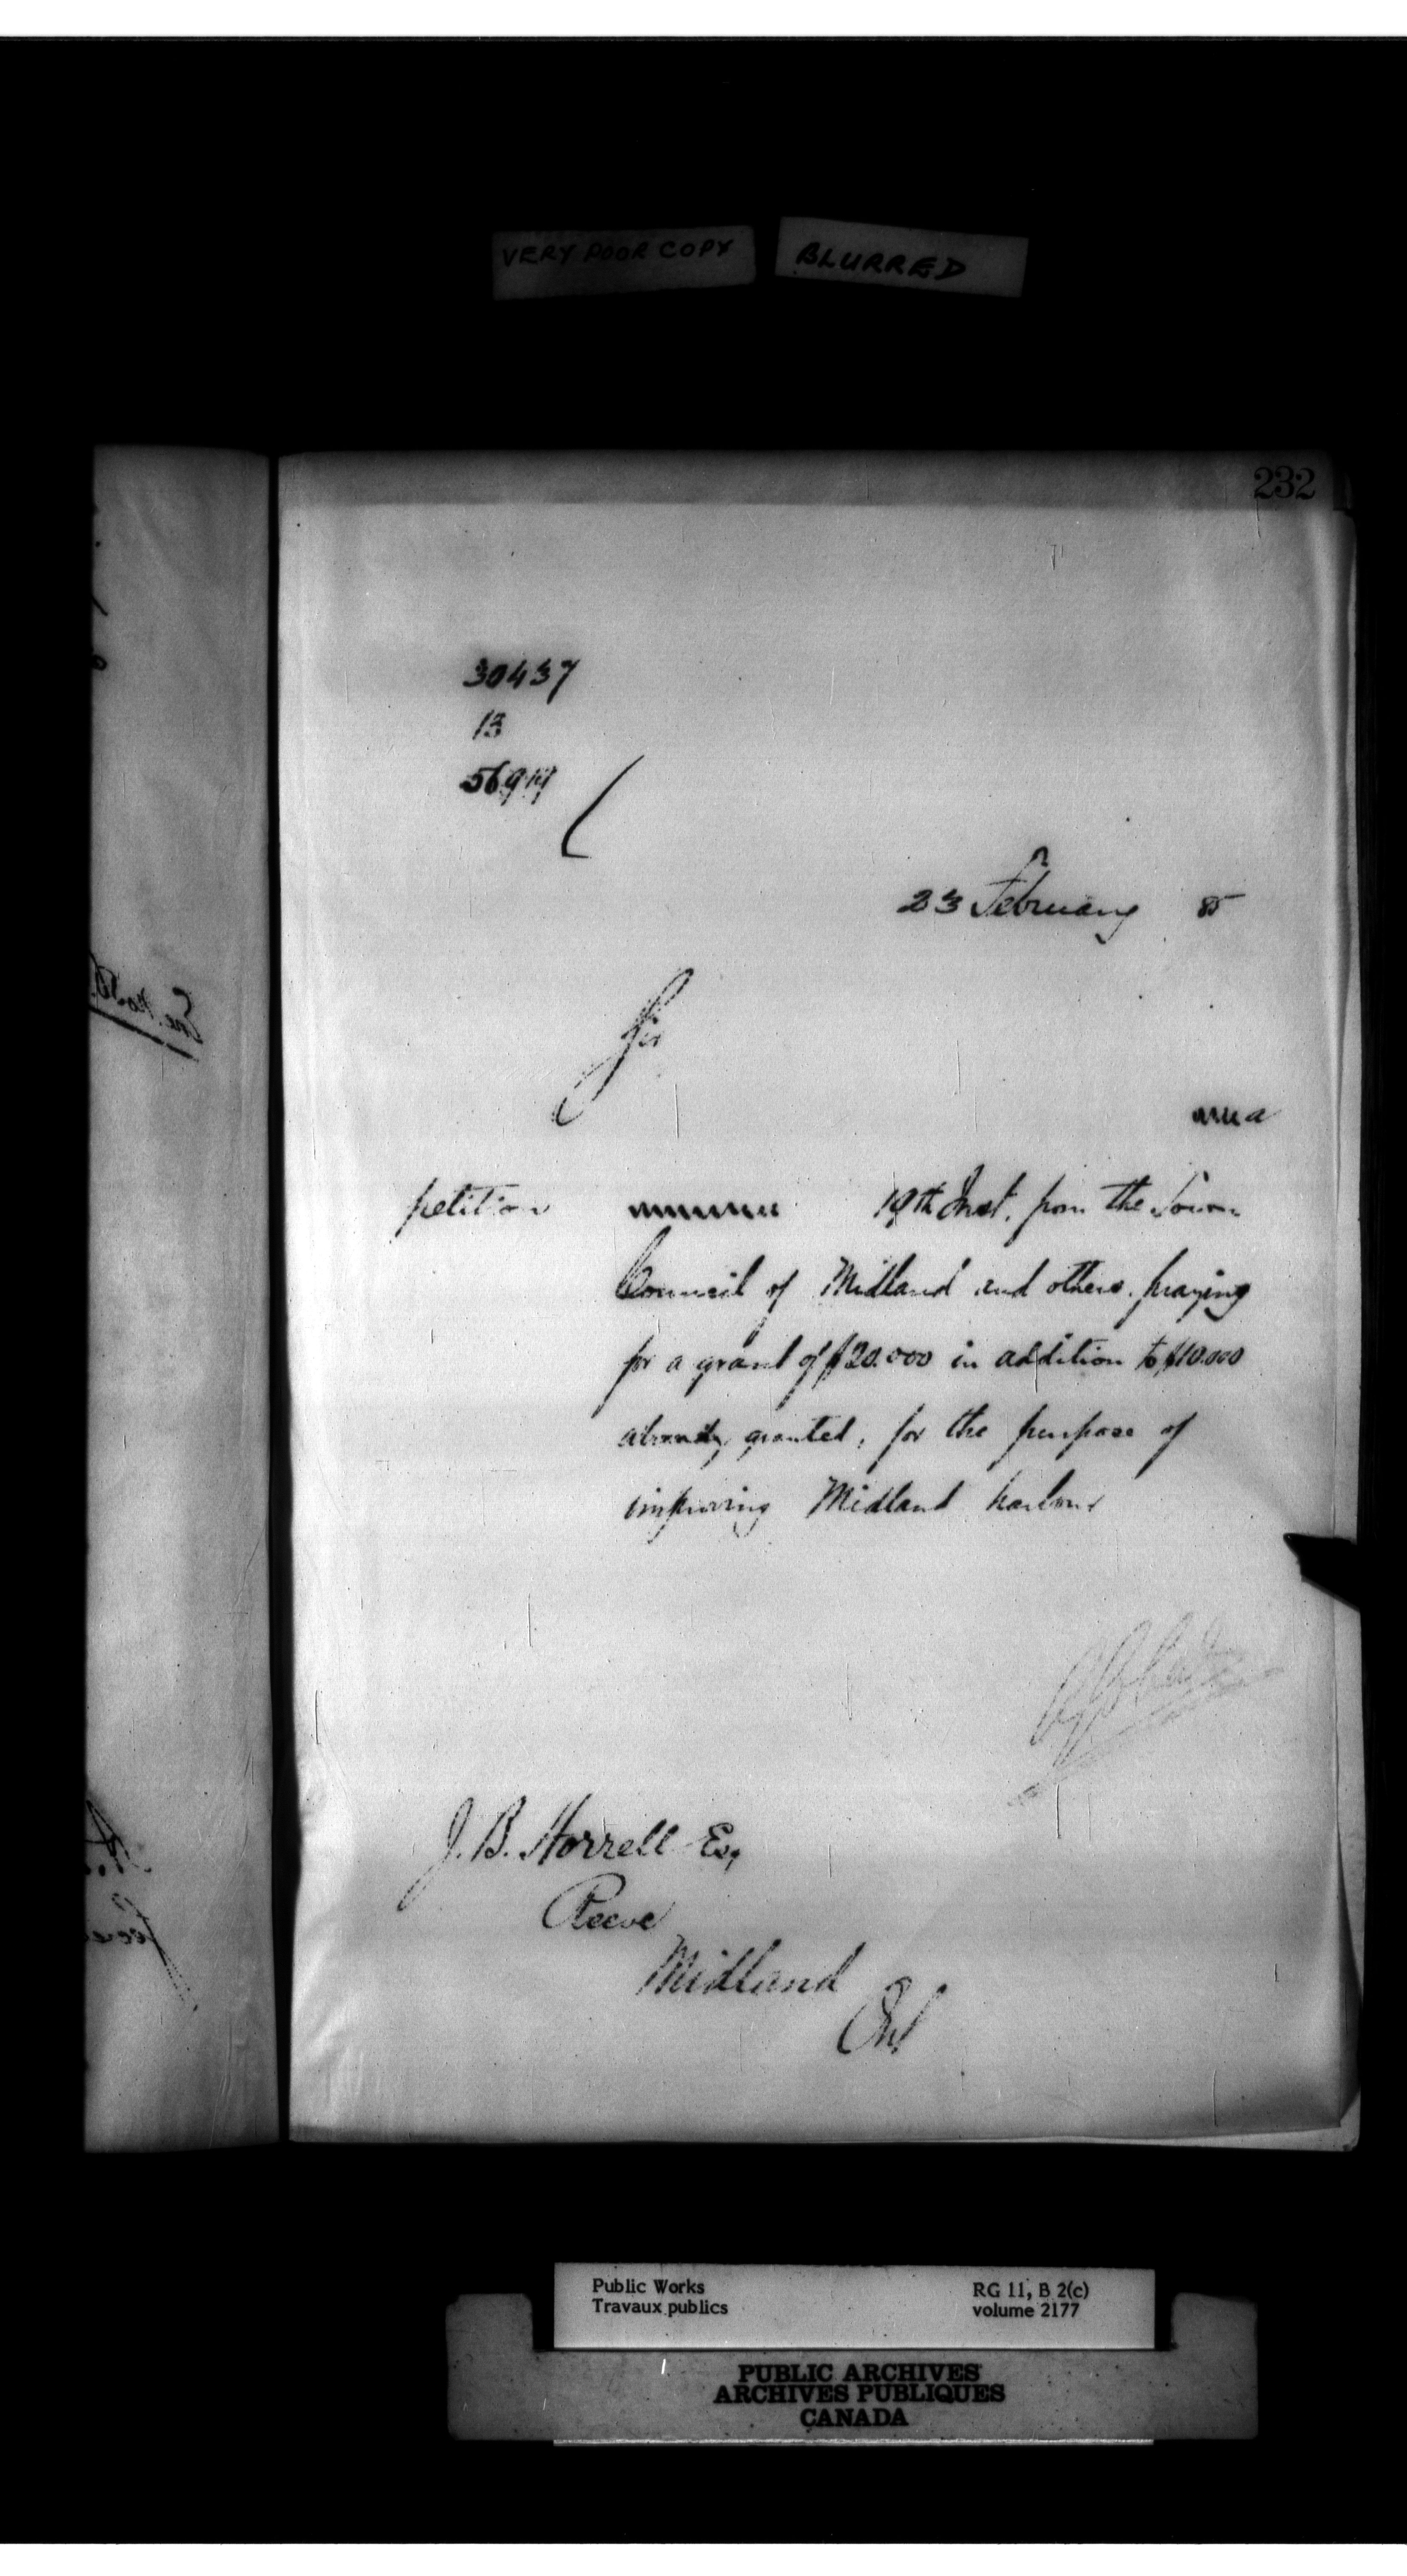 VERY POOR COPY BLURRED
232
30437
13
23 February 85
Sir
a
petition 19th Inst. from the Town
Council of Midland and others, praying
for a grant of $20.000 in addition to $10.000
already granted, for the purpose of
improving Midland harbour
J. B. Horrell Esq
Reeve
Midland
Ont
Public Works
Travaux publics
RG 11, B 2(c)
volume 2177
PUBLIC ARCHIVES
ARCHIVES PUBLIQUES
CANADA